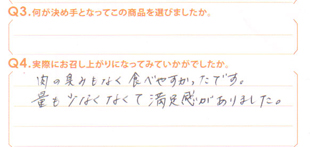 Q3.何が決め手となってこの商品を選びましたか。
Q4.実際にお召し上がりになってみていかがでしたか。
肉の臭みもなく食べやすかったです。
量も少なくなくて満足感がありました。